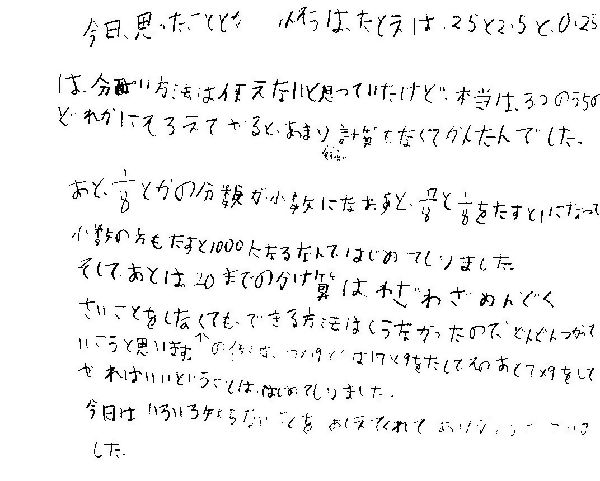 今日、思ったことは たとえば、25と2.5と、0.25
は、分配方法は使えないと思っていたけど、本当は、3つのうちの
どれかにそろえてやると、あまり計算しなくてかんたんでした。
あと、1/8とかの分数が小数になおすと、7/8と1/8をたすと1になって
小数の方もたすと1000になるなんてはじめてしりました。
そして、あとは20までのかけ算は、わざわざめんどく
さいことをしなくても、できる方法はしらなかったので、どんどんつかって
いこうと思います。 をたしてそのあと7×9をして
やればいいということは、はじめてしりました。
今日はいろいろ しらないことを おしえてくれて
した。